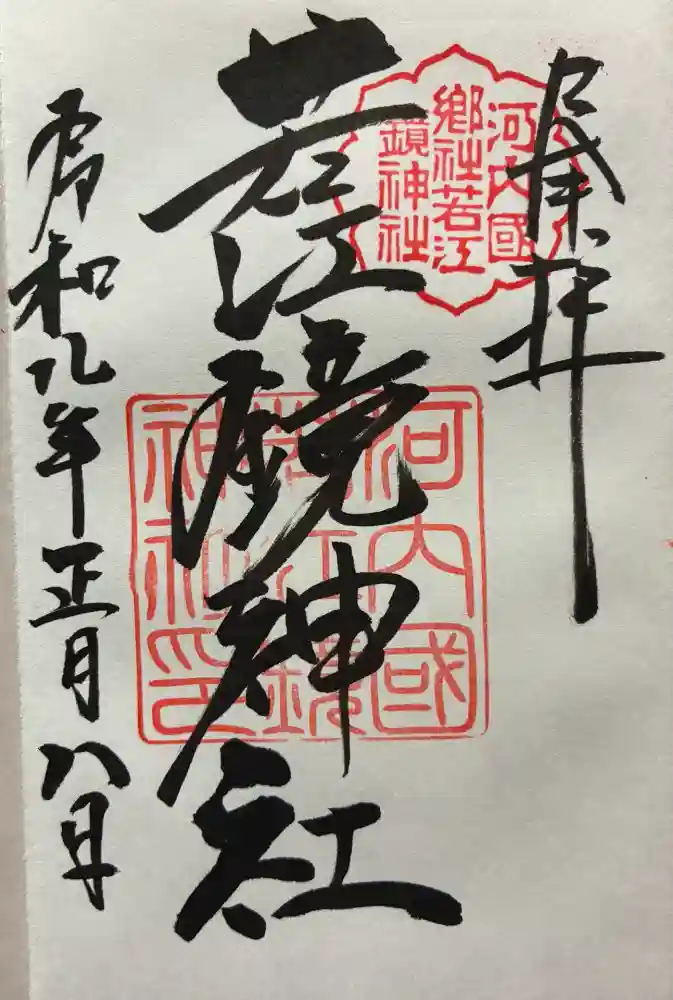 奉拝
河内國
郷社若江
鏡神社
若江鏡神社
河内國
若江鏡
神社印
令和 年正月八日